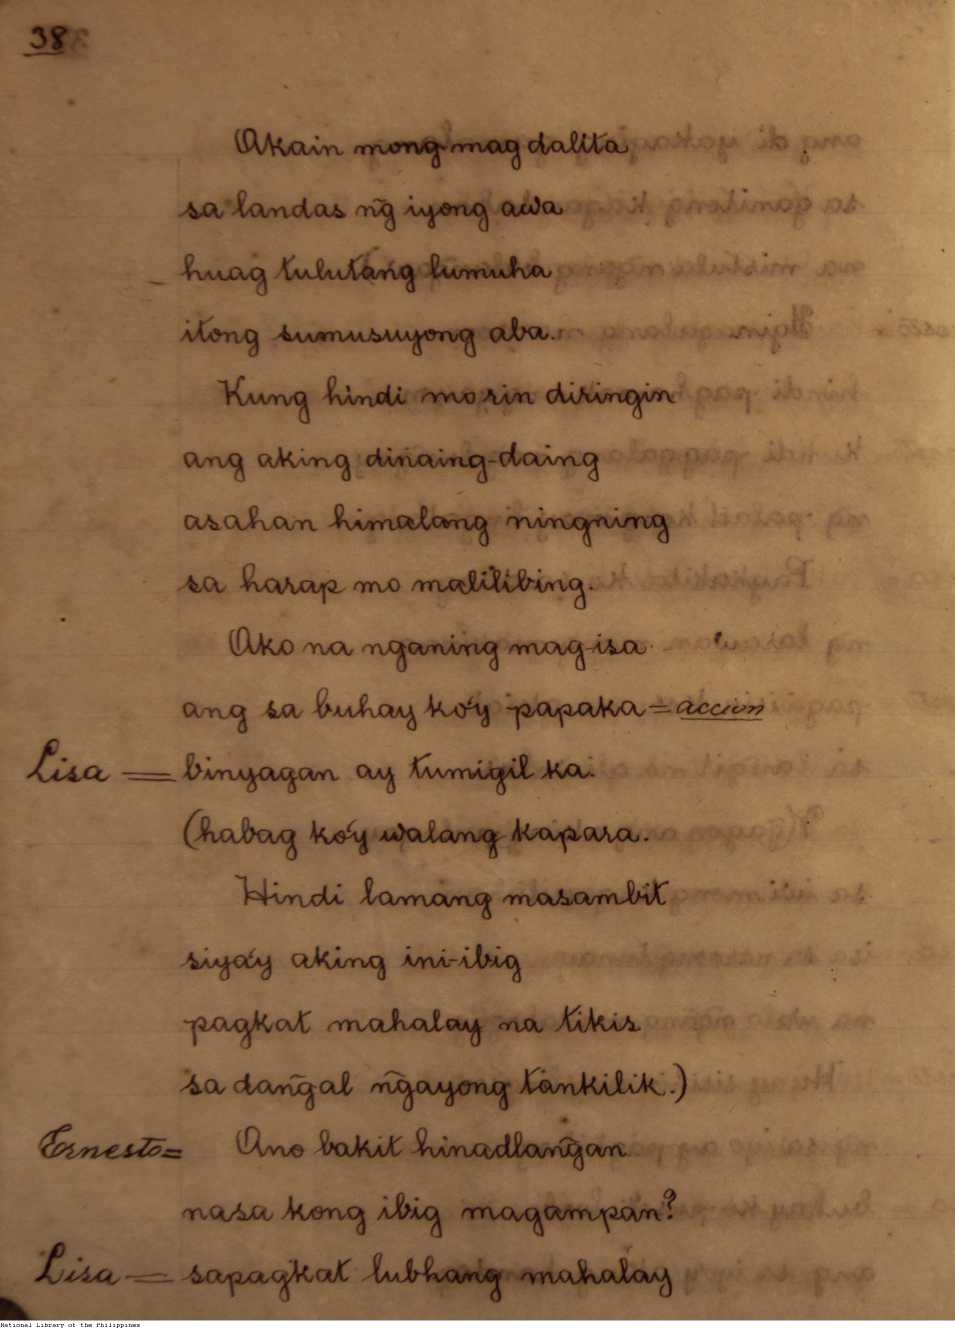 38
Akain mong mag dalita
sa landas ng̃ iyong awa
huag tulutang lumuha
itong sumusuyong aba.
Kung hindi mo rin diringin
ang aking dinaing-daing
asahan himalang ningning
sa harap mo malilibing.
Ako na nganing mag-isa
ang sa buhay ko'y papaka = accion
Lisa = binyagan ay tumigil ka.
(habag ko'y walang kapara.
Hindi lamang masambit
siya'y aking ini-ibig
pagkat mahalay na tikis
sa dang̃al ng̃ayong tankilik.)
Ernesto = Ano bakit hinadlang̃an
nasa kong ibig magampan?
Lisa = sapagkat lubhang mahalay
National Library of the Philippines